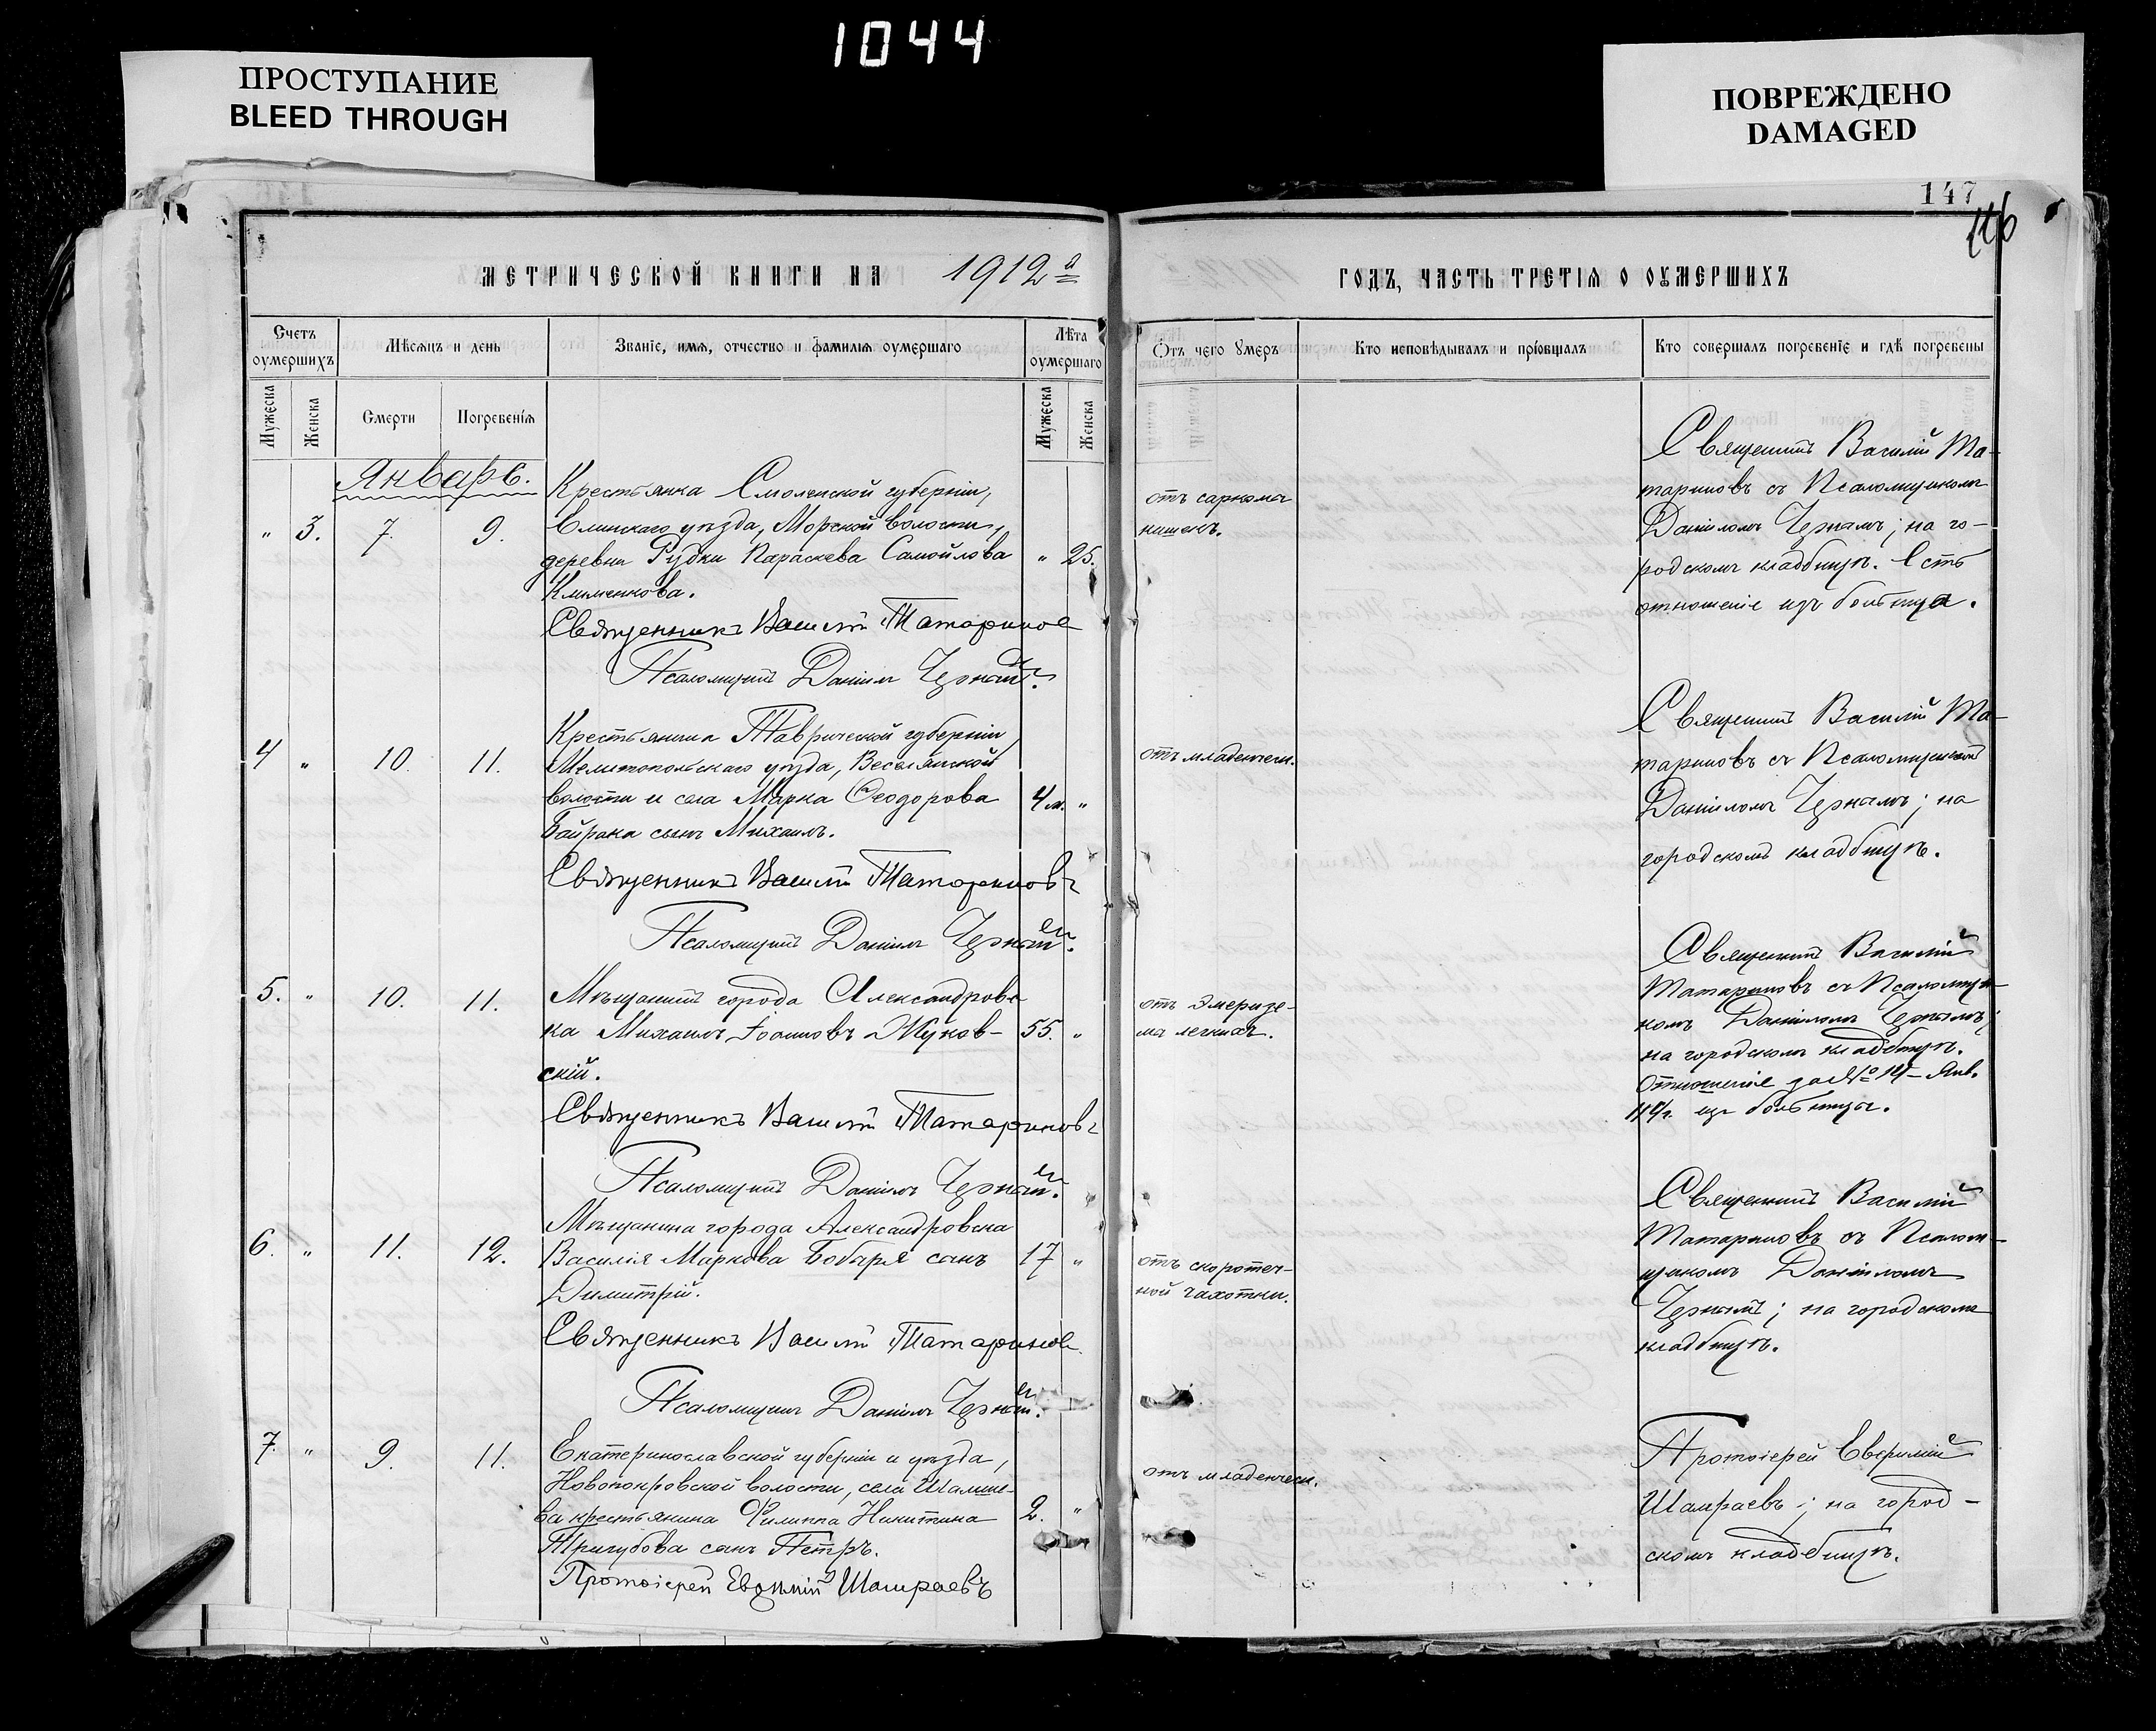 1044
ПРОСТУПАНИЕ
BLEED THROUGH
ПОВРЕЖДЕНО
DAMAGED
147
146
МЕТРИЧЕСКОЙ КНИГИ НА 1912й
ГОДЪ, ЧАСТЬ ТРЕТІЯ О ОУМЕРШИХЪ
Счетъ оумершихъ
Мѣсяцъ и день
Званіе, имя, отчество и фамилія оумершаго
Лѣта оумершаго
Отъ чего умеръ
Кто исповѣдывалъ и пріобщалъ
Кто совершалъ погребеніе и гдѣ погребены
Мужеска
Женска
Смерти
Погребенія
Мужеска
Женска
Январь.
Крестьянка Смоленской губерніи,
" 3. 7. 9. Елинскаго уѣзда, Морской волости,
деревни Рудки Параскева Самойлова " 25.
Клименкова.
Священникъ Василій Татаринов
Псаломщикъ Даніилъ Черный.
отъ саркомы
кишекъ.
Священникъ Василій Та-
тариновъ съ Псаломщикомъ
Даніиломъ Чернымъ; на го-
родскомъ кладбищѣ. Есть
отношеніе изъ больницы.
Крестьянина Таврической губерніи,
4 " 10. 11. Мелитопольскаго уѣзда, Веселянской
волости и села Марка Ѳеодорова 4 м. "
Байрака сынъ Михаилъ.
Священникъ Василій Татариновъ
Псаломщикъ Даніилъ Черный.
отъ младенческ.
Священникъ Василій Та-
тариновъ съ Псаломщикомъ
Даніиломъ Чернымъ; на
городскомъ кладбищѣ.
5. " 10. 11. Мѣщанинъ города Александровс
ка Михаилъ Іоанновъ Жуков- 55. "
скій.
Священникъ Василій Татариновъ
Псаломщикъ Даніилъ Черный.
отъ Эмфизе-
мы легкихъ.
Священникъ Василій
Татариновъ съ Псаломщи-
комъ Даніиломъ Чернымъ;
на городскомъ кладбищѣ.
Отношеніе за № 14 – Янв.
изъ больницы.
Мѣщанина города Александровска
6. " 11. 12. Василія Маркова Бобыря сынъ 17 "
Димитрій.
Священникъ Василій Татаринов
Псаломщикъ Даніилъ Черный.
отъ скоротеч-
ной чахотки.
Священникъ Василій
Татариновъ съ Псалом-
щикомъ Даніиломъ
Чернымъ; на городскомъ
кладбищѣ.
7. " 9. 11. Екатеринославской губерніи и уѣзда,
Новопокровской волости, села Шалише-
ва крестьянина Филиппа Никитина 2. "
Тригубова сынъ Петръ.
Протоіерей Евфимій Шамраевъ
отъ младенческ.
Протоіерей Евфимій
Шамраевъ; на город-
скомъ кладбищѣ.